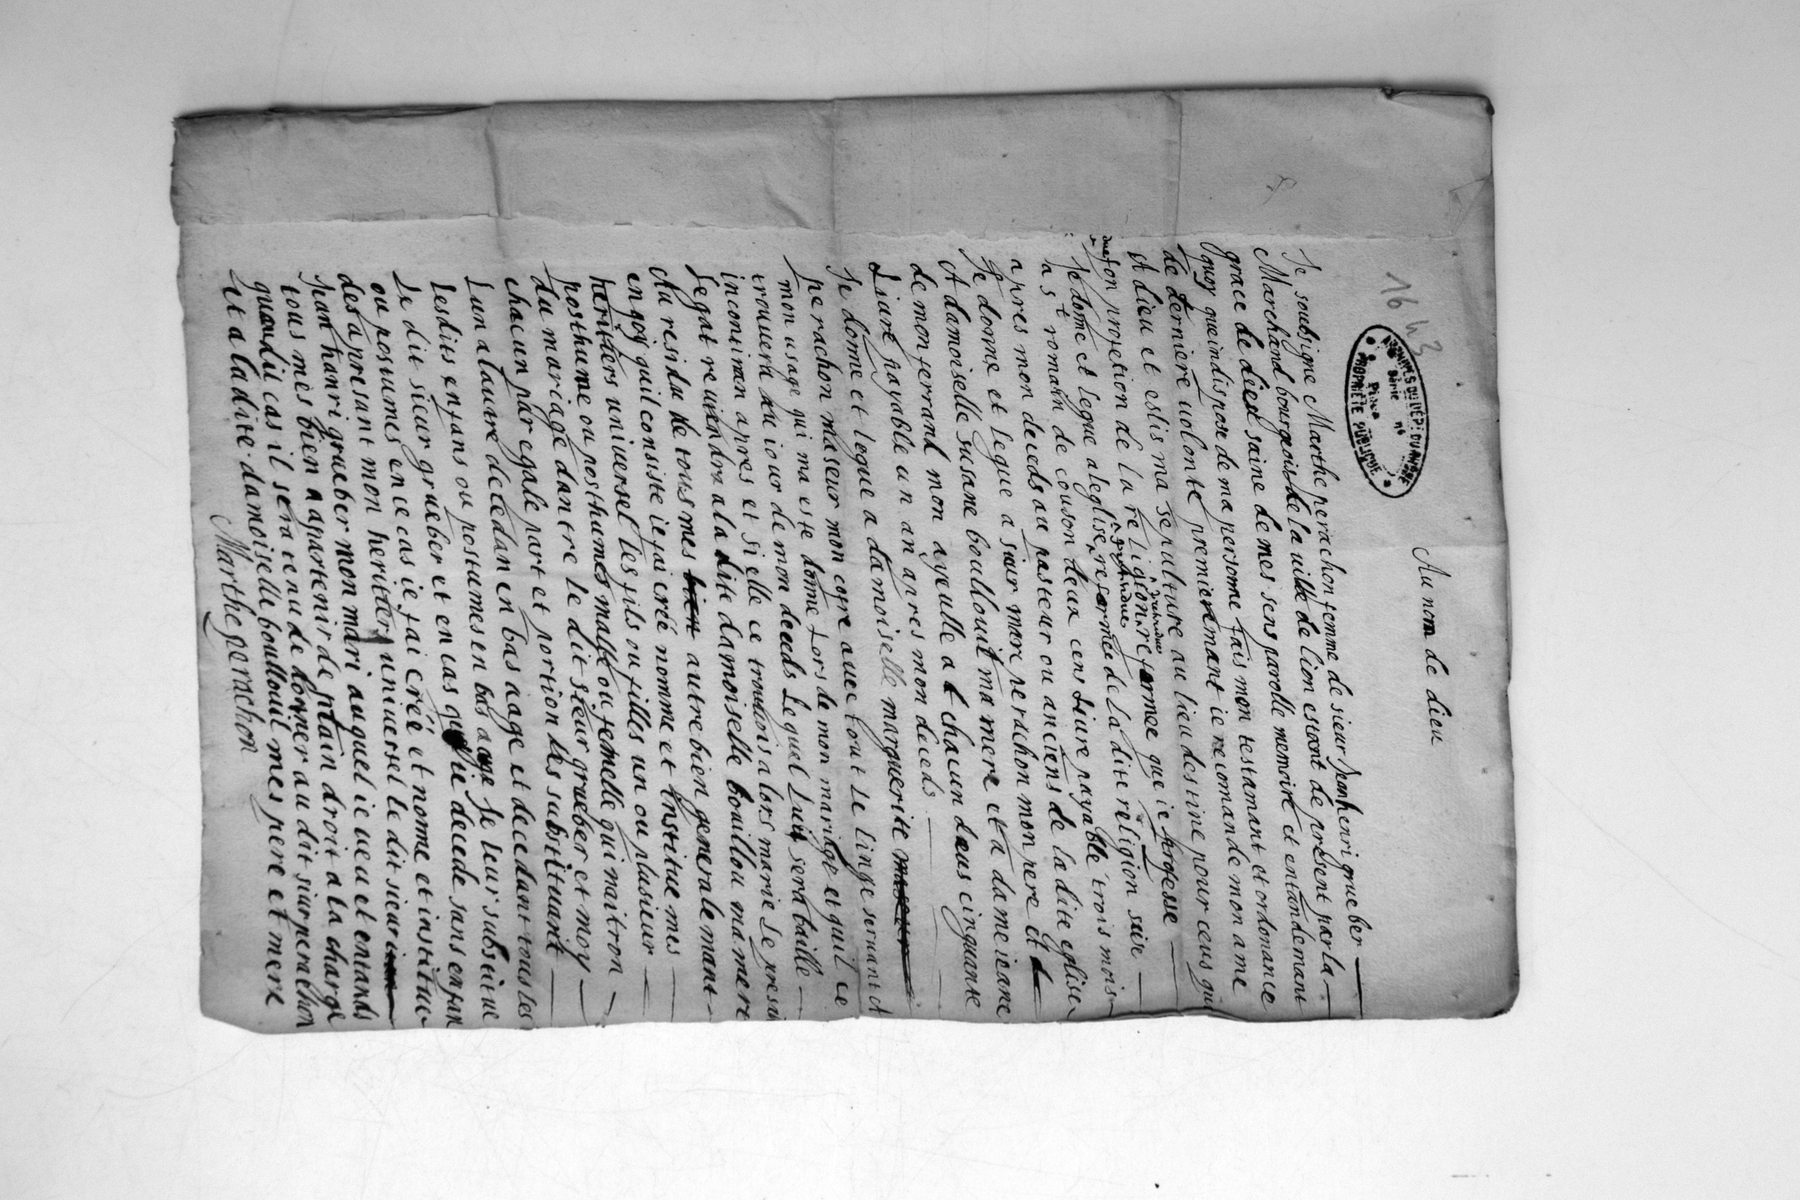 Au nom de dieu
1643
ARCHIVES DU DEPT DU RHONE
Série n°
Pièce
PROPRIÉTÉ PUBLIQUE
Je soubsigne Marthe perrachon femme de sieur Jean henri grueber
Marchand bourgeois de la uille de lion estant de present par la
grace de dieu saine de mes sens parolle memoire et entandemant
quoy que indispose de ma personne fais mon testamant et ordonance
de derniere uolonte premieremant ie recomande mon ame
A dieu et eslis ma sepulture au lieu destine pour ceus qui
font profetion de la religion pretandue reformee que ie professe
Je donne et legue a leglise pretandue reformee de la dite religion sise
a st romain de couson deux cens liure payable trois mois
apres mon deceds au pasteur ou anciens de la dite eglise
Je donne et legue a sieur marc perachon mon pere et
A damoiselle susane boullouit ma mere et a dame ieane
de monferrand mon ayeulle a chacun deus cinquante
Liure payable un an apres mon deceds
Je donne et legue a damoiselle marguerite
perachon ma seur mon cofre auec tout le linge seruant A
mon usage qui ma este donne lors de mon mariage et quil ce
trouuera au iour de mon deceds Lequel luit sera baille
incontinan apres et si elle ce trouuois alors marie le presan
Legat reuiendra a la dite damoiselle bouillou ma mere
Au residu de tous mes bien autre bien generalemant
en qoy quil consiste ie fai créé nomme et institue mes
heritiers uniuersel les fils ou filles un ou plusieur
posthume ou posthumes masle ou femelle qui naitron
du mariage dantre le dit sieur grueber et moy
chacun par egale part et portion les substituant
lun a lautre decedan en bas aage et decedant tous les
lesdits enfans ou postumes en bas aage Je leur substitue
Le dit sieur grueber et en cas que ie decede sans enfan
ou postumes en ce cas ie fai créé et nomme et institue
des a presant mon heritier uniuersel le dit sieur
Jean hanri grueber mon mari auquel ie ueu et entands
tous mes bien apartenir de plain droit a la charge
quaudit cas il sera tenu de donner au dit sieur perachon
et a la dite damoiselle boullouit mes pere et mere
Marthe perachon